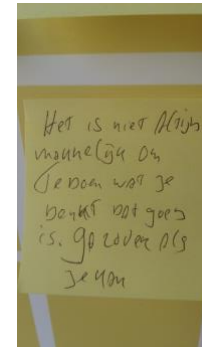 Het is niet altijd
makkelijk om
te doen wat je
denkt dat goed
is. go zover als
je kan